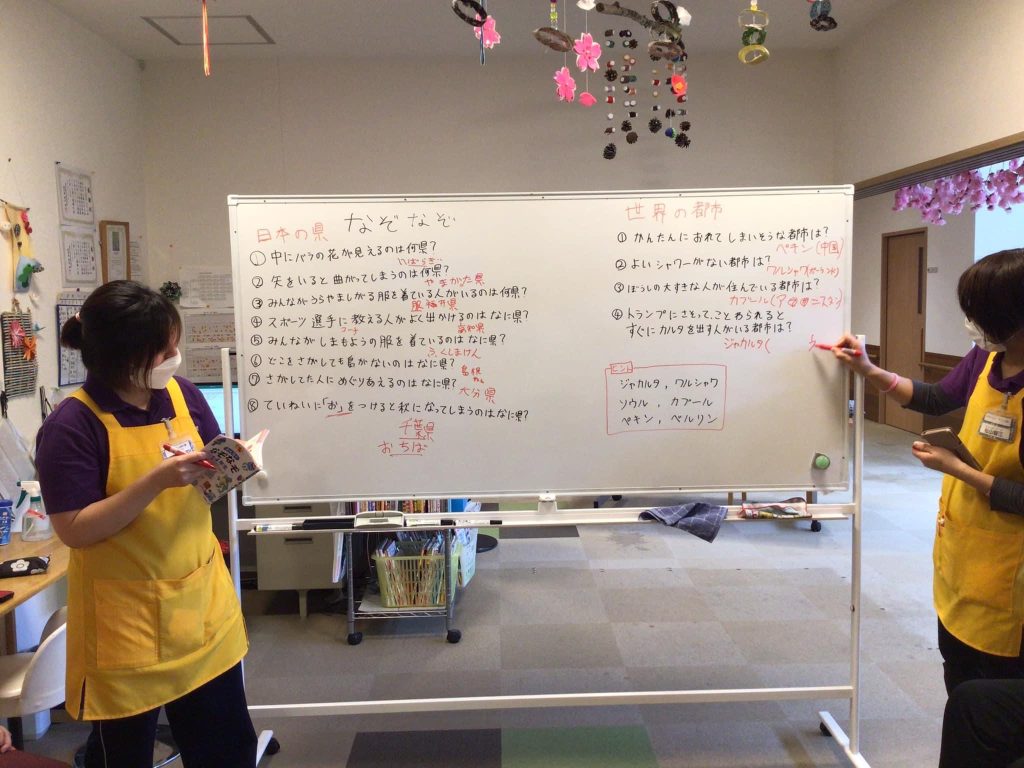 なぞなぞ
日本の県
① 中にバラの花が見えるのは何県?
いばらぎ
② 矢をいると曲がってしまうのは何県?
やまがった県
③ みんながうらやましがる服を着ている人がいるのは何県?
服 福井県
④ スポーツ選手に教える人がよく出かけるのはなに県?
コーチ
高知県
⑤ みんながしまもようの服を着ているのはなに県?
ふくしまけん
⑥ どこをさがしても島がないのはなに県?
島根
けん
⑦ さがしてた人にめぐりあえるのはなに県?
大分県
⑧ ていねいに「お」をつけると秋になってしまうのはなに県?
千葉県
おちば
世界の都市
① かんたんにおれてしまいそうな都市は?
ペキン(中国)
② よいシャワーがない都市は?
ワルシャワ(ポーランド)
③ ぼうしの大すきな人が住んでいる都市は?
カブール(ア
ニスタン)
④ トランプにさそって、ことわられると
すぐにカルタを出す人がいる都市は?
ジャカルタ(
ヒント
ジャカルタ, ワルシャワ
ソウル, カブール
ペキン, ベルリン
なぞなぞ